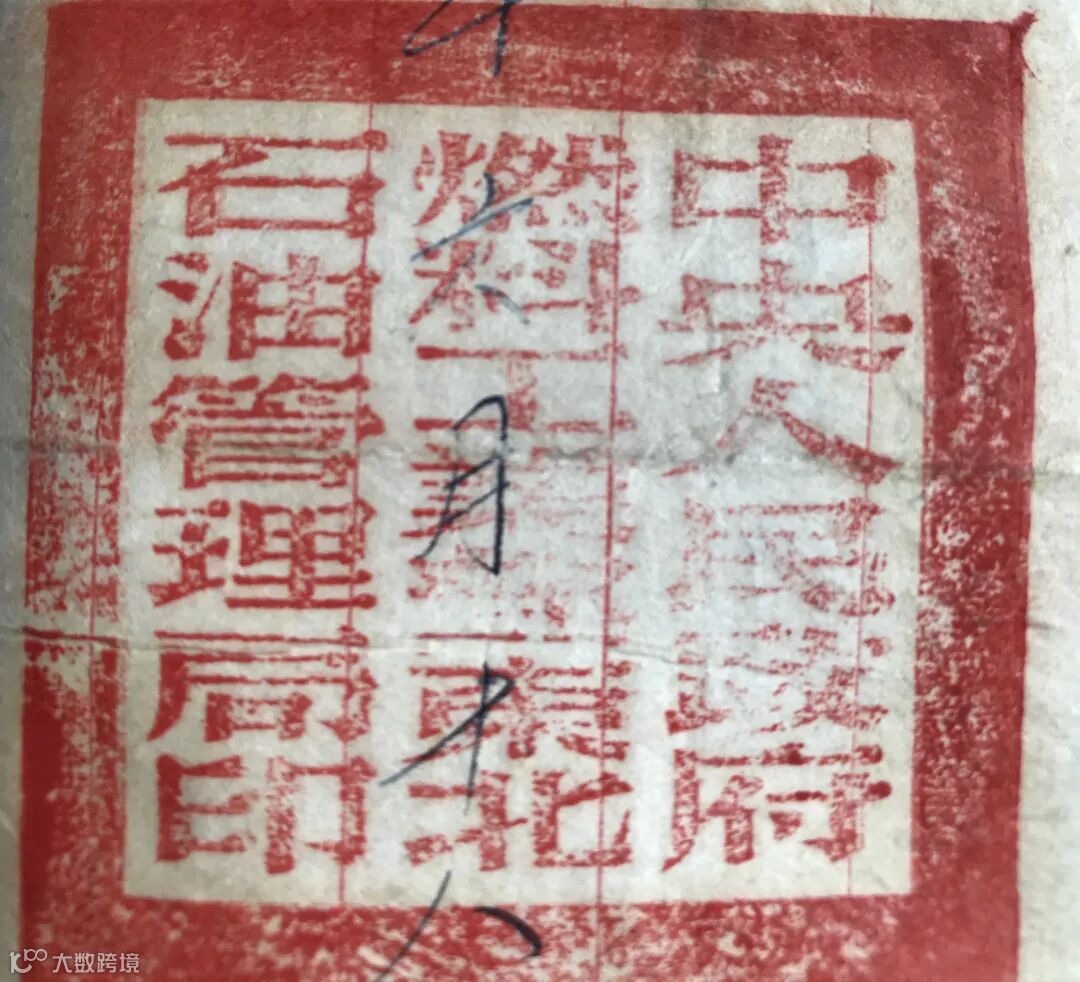 中央人民政府
燃料工業部東北
石油管理局印
六月十八
大数跨境